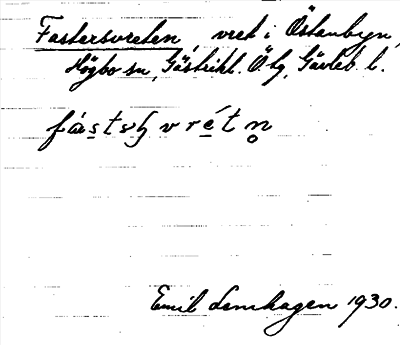 Fastersvreten vret i Östanbyn,
Högbo sn, Gästrikl. Ö. tg, Gävleb. l.
Emil Lenhagen 1930.